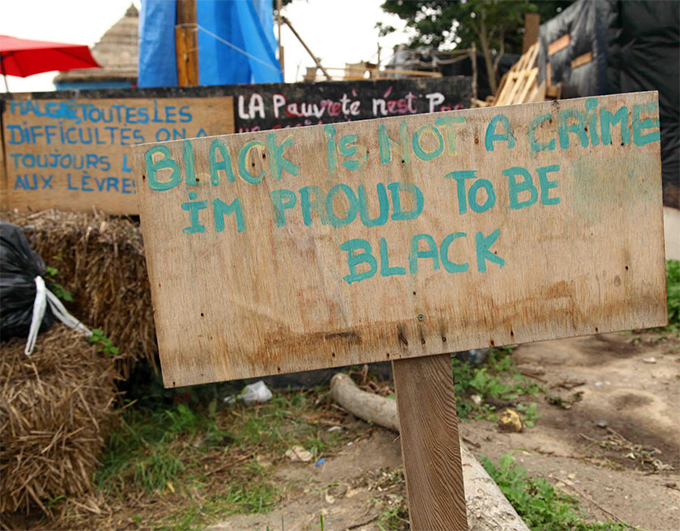 MALGRÉ TOUTES LES
DIFFICULTÉS ON A
TOUJOURS L
AUX LÈVRES
LA PAuvRETÉ N'EST PA
BLACK is NOT A CRIME
iM PROUD TO BE
BLACK